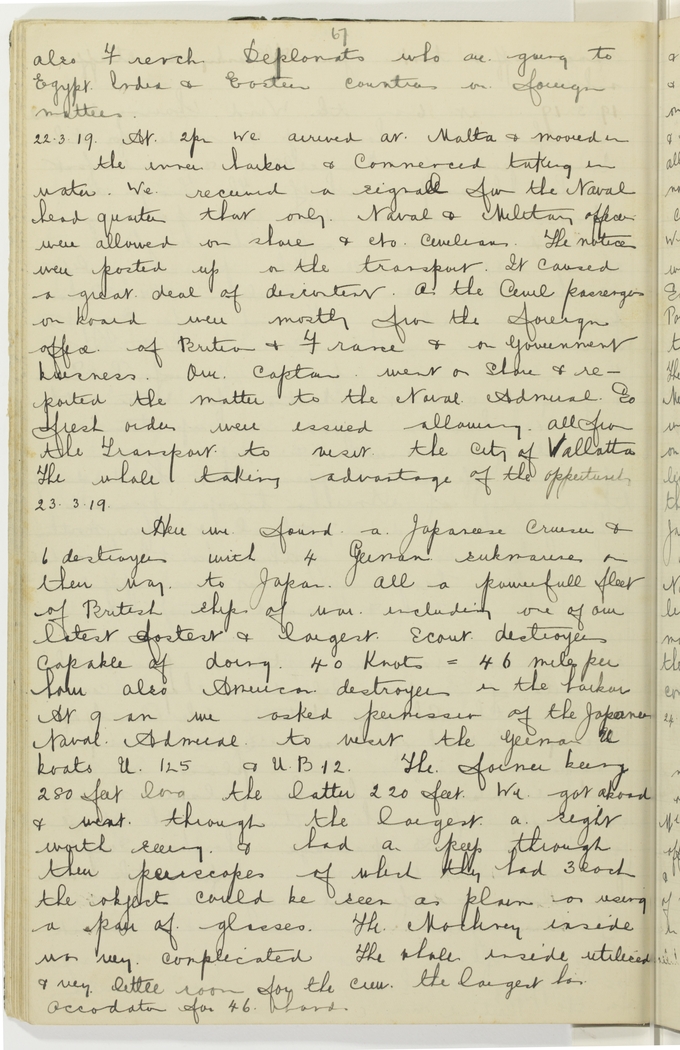 67
also French Deplomats who are going to
Egypt India & Eastern countries on foreign
matters.
22.3.19. At 2pm we arrived at Malta & moored in
the inner harbor & Commenced taking in
water. We received a signall from the Naval
head quarters that only Naval & Military officers
were allowed on shore & cto. Cevilians. The notices
were posted up on the transport. It caused
a great deal of descontent. As the Cevil passengers
on board were mostly from the foreign
office of Britian & France & on Government
buesness. Our Captain went on Shore & re-
ported the matter to the Naval Admiral. So
fresh orders were issued allowing all from
the Transport to viset the City of Vallatta
The whole taking advantage of the oppertunity
23.3.19.
Here we found a Japaneese Cruiser &
6 destroyers with 4 German submarines on
their way to Japan. all a powerfull fleet
of British ships of war including one of our
latest fastest & largest Scout destroyers
Capable of doing 40 Knots = 46 miles per
hour also American destroyers in the harbor
At 9 am we asked permission of the Japanese
Naval Admiral to viset the German U
boats U. 125 & U.B 12. The former being
280 feet long the latter 220 feet. We got aboard
& went through the largest a sight
worth seeing & had a peep through
their periscopes of which they had 3 each
the object could be seen as plain as using
a pair of glasses. The Machinery inside
was very complicated The whole inside utilised
& very little room for the crew. the largest has
accodation for 46 hands